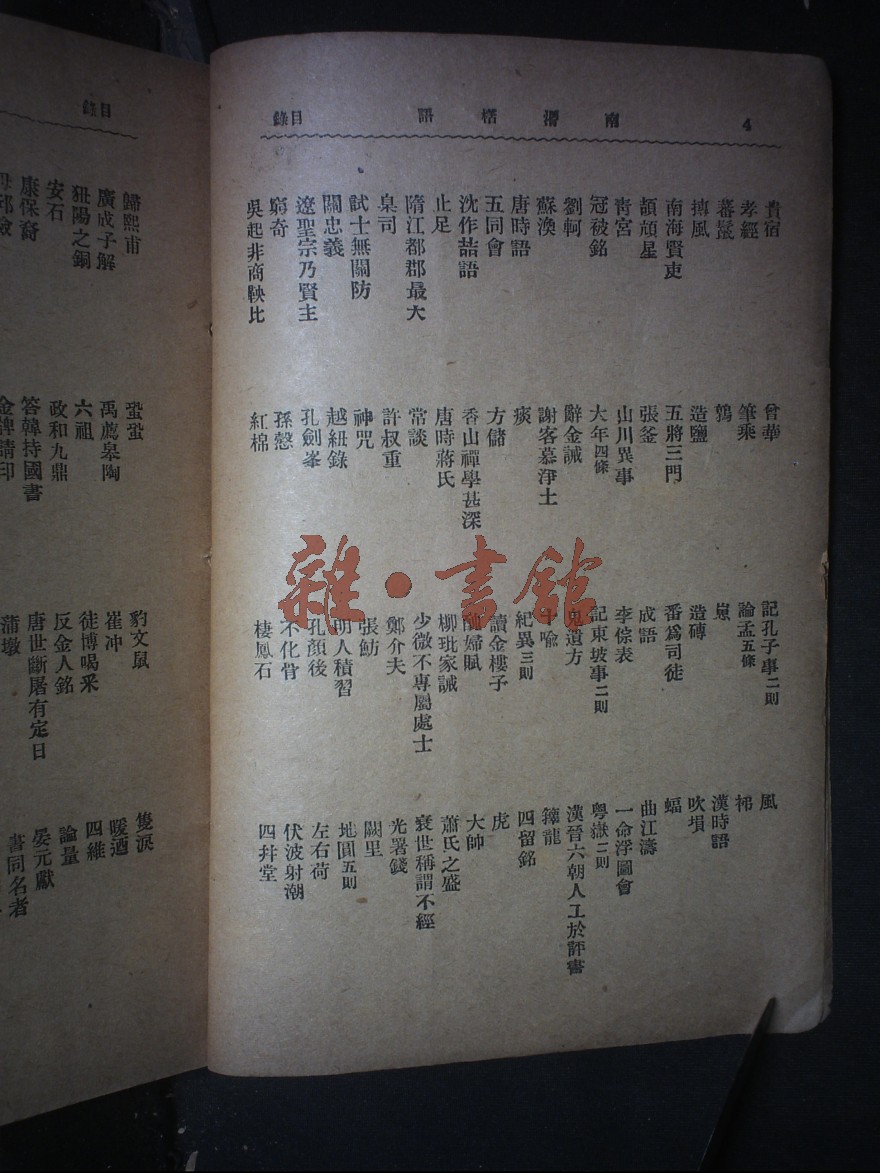 4 南漘楛語 目錄
貴宿 曾華 記孔子事二則 風
孝經 筆乘 論孟五條 祁
蕃鬘 鶉 崽 漢時語
摶風 造鹽 造磚 吹塤
南海賢吏 五將三門 番爲司徒 蝠
頡頏星 張釜 成語 曲江濤
靑宮 山川異事 李倧表 一命浮圖會
冠被銘 大年四條 記東坡事二則 粵嶽二則
劉軻 辭金誠 鬼遺方 漢晉六朝人工於評書
蘇渙 謝客慕淨土 十喩 籜龍
唐時語 痰 紀異三則 四留銘
五同會 方儲 讀金樓子 虎
沈作喆語 香山禪學甚深 醜婦賦 大帥
止足 唐時蔣氏 柳玭家誠 蕭氏之盛
隋江都郡最大 常談 少微不專屬處士 衰世稱謂不經
臬司 許叔重 鄭介夫 光署錢
試士無關防 神咒 張魴 闕里
關忠義 越紐錄 明人積習 地圓五則
遼聖宗乃賢主 孔劍峯 孔顏後 左右荷
窮奇 孫慤 不化骨 伏波射潮
吳起非商鞅比 紅棉 棲鳳石 四井堂
目錄
歸熙甫 蛩蛩 豹文鼠 雙淚
廣成子解 禹薦皋陶 崔冲 暖酒
狃陽之銅 六祖 徒博喝釆 四維
安石 政和九鼎 反金人銘 論量
康保裔 答韓持國書 唐世斷屠有定日 晏元獻
金牌請印 蒲墩 書同名者
雜·書館